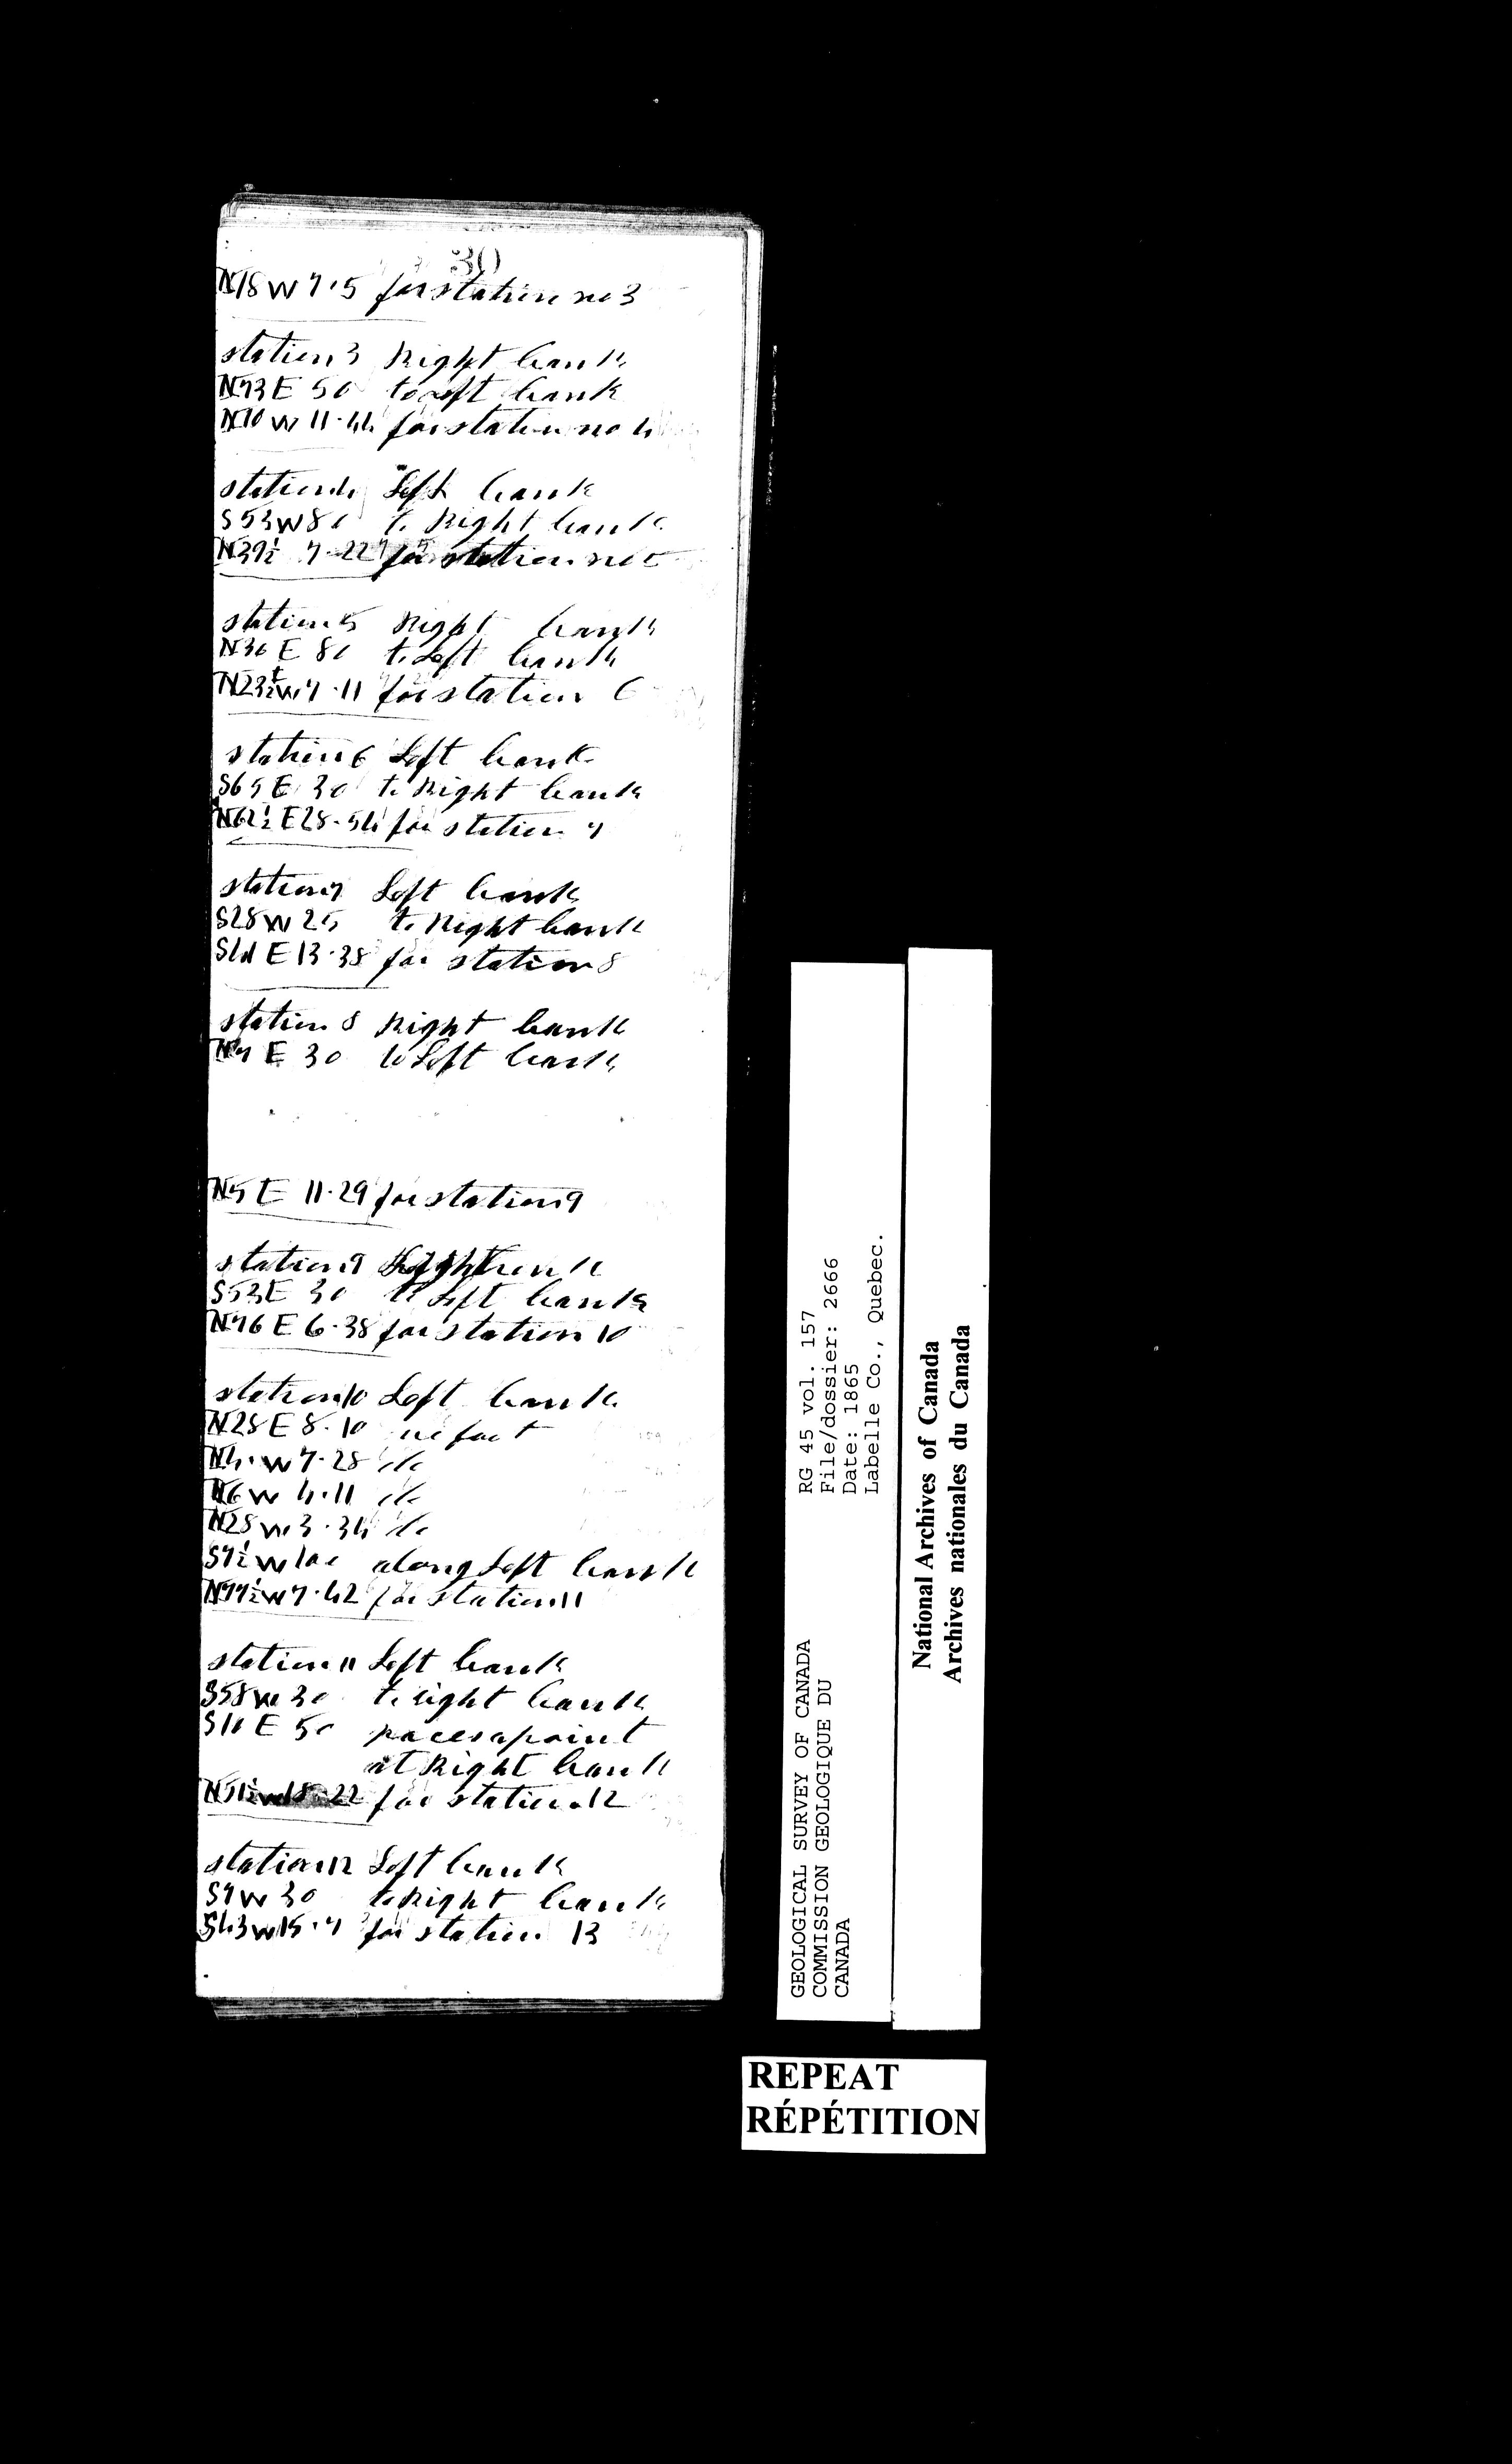 30
N18W 7·5 for station no 3
station 3 Right bank
N73E 50 to Left bank
N10W 11·44 for station no 4
station 4 Left bank
S53W 80 to Right bank
N39½ 7·22 for station no 5
station 5 Right bank
N36E 80 to Left bank
N23½W 7·11 for station 6
station 6 Left bank
S65E 30 to Right bank
N62½E 28·54 for station 7
station 7 Left bank
S28W 25 to Right bank
E 13·38 for station 8
station 8 Right bank
N7E 30 to Left bank
N5E 11·29 for station 9
station 9 Right bank
S53E 30 to Left bank
N76E 6·38 for station 10
station 10 Left bank
N28E 8·10
W 7·28 do
N6W 4·11 do
N28W 3·34 do
S7½W 100 along Left bank
N77½W 7·42 for station 11
station 11 Left bank
S58W 30 to right bank
S10E 50 paces a point
at Right bank
N51½W 18·22 for station 12
station 12 Left bank
S7W 30 to Right bank
S43W 15·7 for station 13
RG 45 vol. 157
File/dossier: 2666
Date: 1865
Labelle Co., Quebec.
GEOLOGICAL SURVEY OF CANADA
COMMISSION GEOLOGIQUE DU
CANADA
National Archives of Canada
Archives nationales du Canada
REPEAT
RÉPÉTITION